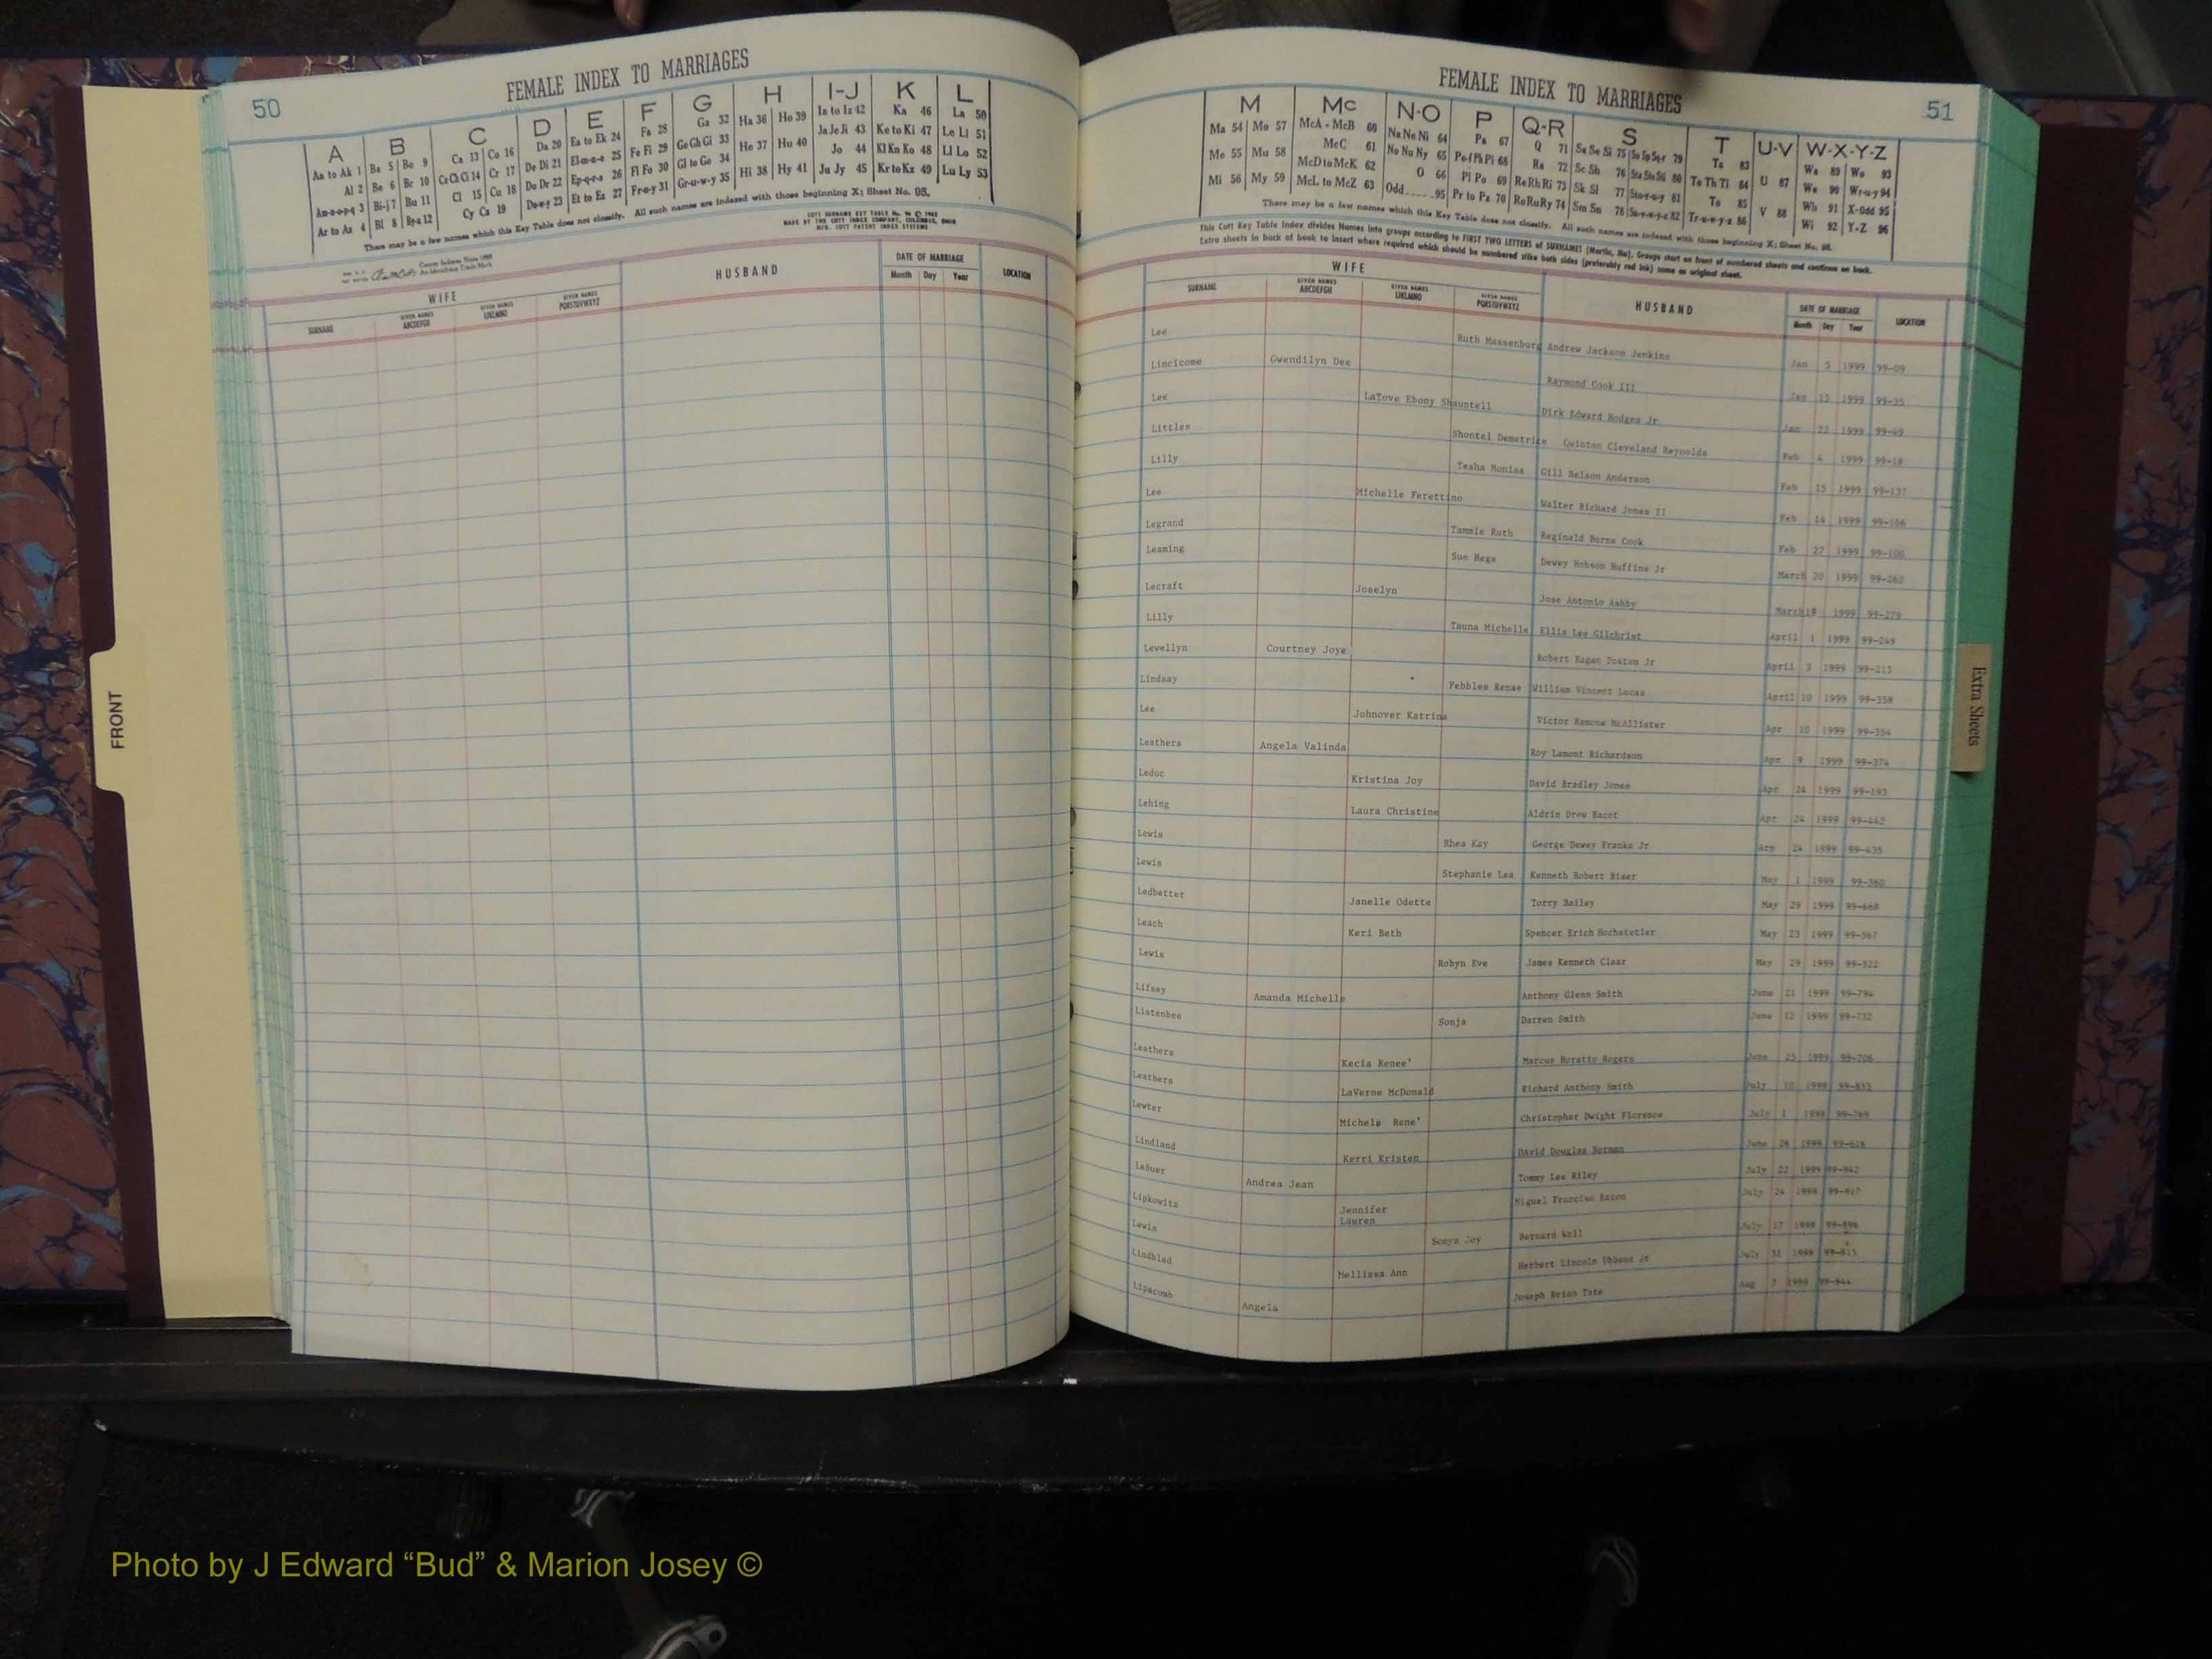 FRONT
50
FEMALE INDEX TO MARRIAGES
A B C D E F G H I-J K L
Aa to Ak 1 Ba 5 Bo 9 Ca 13 Co 16 Da 20 Ea to Ek 24 Fa 28 Ga 32 Ha 36 Ho 39 Ia to Iz 42 Ka 46 La 50
Al 2 Be 6 Br 10 Ce Ch Ci 14 Cr 17 De Di 21 El-m-n-o 25 Fe Fi 29 Ge Gh Gi 33 He 37 Hu 40 Ja Je Ji 43 Ke to Ki 47 Le Li 51
Am-n-o-p-q 3 Bi-j 7 Bu 11 Cl 15 Cu 18 Do Dr 22 Ep-q-r-s 26 Fl Fo 30 Gl to Go 34 Hi 38 Hy 41 Jo 44 Kl Kn Ko 48 Ll Lo 52
Ar to Az 4 Bl 8 By-z 12 Cy Cz 19 Du-w-y 23 Et to Ez 27 Fr-u-y 31 Gr-u-w-y 35 Ju Jy 45 Kr to Kz 49 Lu Ly 53
There may be a few names which this Key Table does not classify. All such names are indexed with those beginning X; Sheet No. 95.
MADE BY THE COTT INDEX COMPANY, COLUMBUS, OHIO
MFG. COTT PATENT INDEX SYSTEMS
WIFE HUSBAND DATE OF MARRIAGE LOCATION
SURNAME GIVEN NAMES ABCDEFGH GIVEN NAMES IJKLMNO GIVEN NAMES PQRSTUVWXYZ Month Day Year
FEMALE INDEX TO MARRIAGES
51
M Mc N-O P Q-R S T U-V W-X-Y-Z
Ma 54 Mo 57 McA - McB 60 Na Ne Ni 64 Pa 67 Q 71 Sa Se Si 75 So Sp Sq-r 79 Ta 83 Wa 89 Wo 93
Me 55 Mu 58 McC 61 No Nu Ny 65 Pe-f Ph Pi 68 Ra 72 Sc Sh 76 Sta Ste Sti 80 Te Th Ti 84 U 87 We 90 Wr-u-y 94
Mi 56 My 59 McD to McK 62 O 66 Pl Po 69 Re Rh Ri 73 Sk Sl 77 Sto-r-u-y 81 To 85 Wh 91 X-Odd 95
McL to McZ 63 Odd 95 Pr to Pz 70 Ro Ru Ry 74 Sm Sn 78 Su-v-w-y-z 82 Tr-u-w-y-z 86 V 88 Wi 92 Y-Z 96
There may be a few names which this Key Table does not classify. All such names are indexed with those beginning X; Sheet No. 95.
This Cott Key Table Index divides Names into groups according to FIRST TWO LETTERS of SURNAMES (Martin, Ma). Groups start on front of numbered sheets and continue on back.
Extra sheets in back of book to insert where required which should be numbered alike both sides (preferably red ink) same as original sheet.
WIFE HUSBAND DATE OF MARRIAGE LOCATION
SURNAME GIVEN NAMES ABCDEFGH GIVEN NAMES IJKLMNO GIVEN NAMES PQRSTUVWXYZ Month Day Year
Lee Ruth Massenburg Andrew Jackson Jenkins Jan 5 1999 99-09
Lincicome Gwendilyn Dee Raymond Cook III Jan 15 1999 99-35
Lee LaTove Ebony Shauntell Dirk Edward Hodges Jr Jan 22 1999 99-49
Littles Shontel Demetrice Quinton Cleveland Reynolds Feb 4 1999 99-18
Lilly Tesha Moniaa Gill Nelson Anderson Feb 15 1999 99-137
Lee Michelle Ferettino Walter Richard Jones II Feb 14 1999 99-106
Legrand Tammie Ruth Reginald Burns Cook Feb 27 1999 99-100
Leaming Sue Hege Dewey Hobson Huffins Jr March 20 1999 99-262
Lecraft Joselyn Jose Antonio Ashby March 19 1999 99-279
Lilly Tauna Michelle Ellis Lee Gilchrist April 1 1999 99-249
Lewellyn Courtney Joye Robert Ragan Poston Jr April 3 1999 99-215
Lindsay Pebbles Renae William Vincent Lucas April 10 1999 99-358
Lee Johnover Katrina Victor Ramone McAllister Apr 10 1999 99-354
Leathers Angela Valinda Roy Lamont Richardson Apr 9 1999 99-374
Leduc Kristina Joy David Bradley Jones Apr 24 1999 99-193
Lehing Laura Christine Aldrin Drew Bacot Apr 24 1999 99-442
Lewis Rhea Kay George Dewey Franks Jr Arp 24 1999 99-435
Lewis Stephanie Lea Kenneth Robert Biser May 1 1999 99-360
Ledbetter Janelle Odette Torry Bailey May 29 1999 99-668
Leach Keri Beth Spencer Erich Hochstetler May 23 1999 99-567
Lewis Robyn Eve James Kenneth Claar May 29 1999 99-522
Lifsey Amanda Michelle Anthony Glenn Smith June 21 1999 99-794
Listenbee Sonja Darren Smith June 12 1999 99-732
Leathers Kecia Renee' Marcus Horatio Rogers June 25 1999 99-706
Leathers LaVerne McDonald Richard Anthony Smith July 10 1999 99-853
Lewter Michele Rene' Christopher Dwight Florence July 1 1999 99-769
Lindland Kerri Kristen DAvid Douglas Norman June 26 1999 99-626
LeSuer Andrea Jean Tommy Lee Riley July 22 1999 99-942
Lipkowitz Jennifer Lauren Miguel Franciso Eaton July 24 1999 99-917
Lewis Sonya Joy Bernard Wall July 17 1999 99-896
Lindblad Mellissa Ann Herbert Lincoln Ubbens Jr July 31 1999 99-815
Lipscomb Angela Joseph Brian Tate Aug 7 1999 99-944
Extra Sheets
Photo by J Edward “Bud” & Marion Josey ©